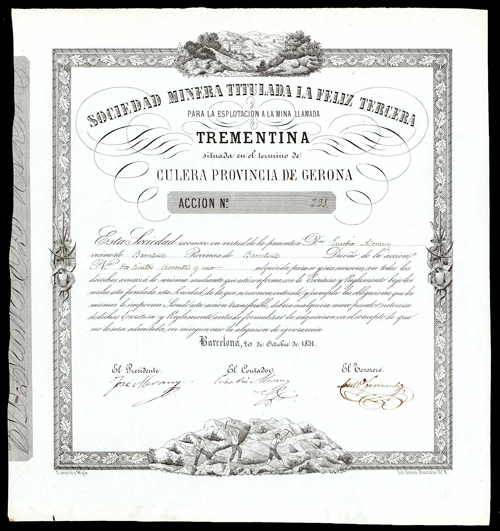 SOCIEDAD MINERA TITULADA LA FELIZ TERCERA
PARA LA ESPLOTACION A LA MINA LLAMADA
TREMENTINA
situada en el termino de
CULERA PROVINCIA DE GERONA
ACCION Nº 291
Esta Sociedad reconoce en virtud de la presente a Dn
vecino de Barcelona Provincia de Barcelona Dueño de la accion
Nº dos cientos noventa y uno adquirida para si y sus sucesores con todos los
derechos anexos de la misma mediante que este conforme a la Escritura y Reglamento bajo los
cuales esta fundada esta Sociedad de la que se reconoce enterado, y cumpla las obligaciones que los
mismos le imponen. Siendo esta accion transferible, debera cualquiera nuevo poseedor enterarse
de dichos Escritura y Reglamento antes de formalizar la adquisicion en el concepto de que
no le sera admitida, en ningun caso la alegacion de ignorancia
Barcelona, 20 de Octubre de 1851.
El Presidente. El Contador. El Tesorero.